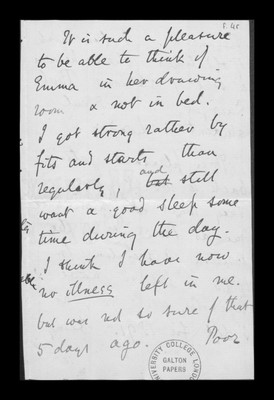 It is such a pleasure
to be able to think of
Emma in her drawing
room & not in bed.
I get strong rather by
fits and starts than
regularly, and still
want a good sleep some
time during the day.
I think I have now
no illness left in me.
but was not so sure of that
5 days ago. Poor
UNIVERSITY COLLEGE LONDON
GALTON
PAPERS